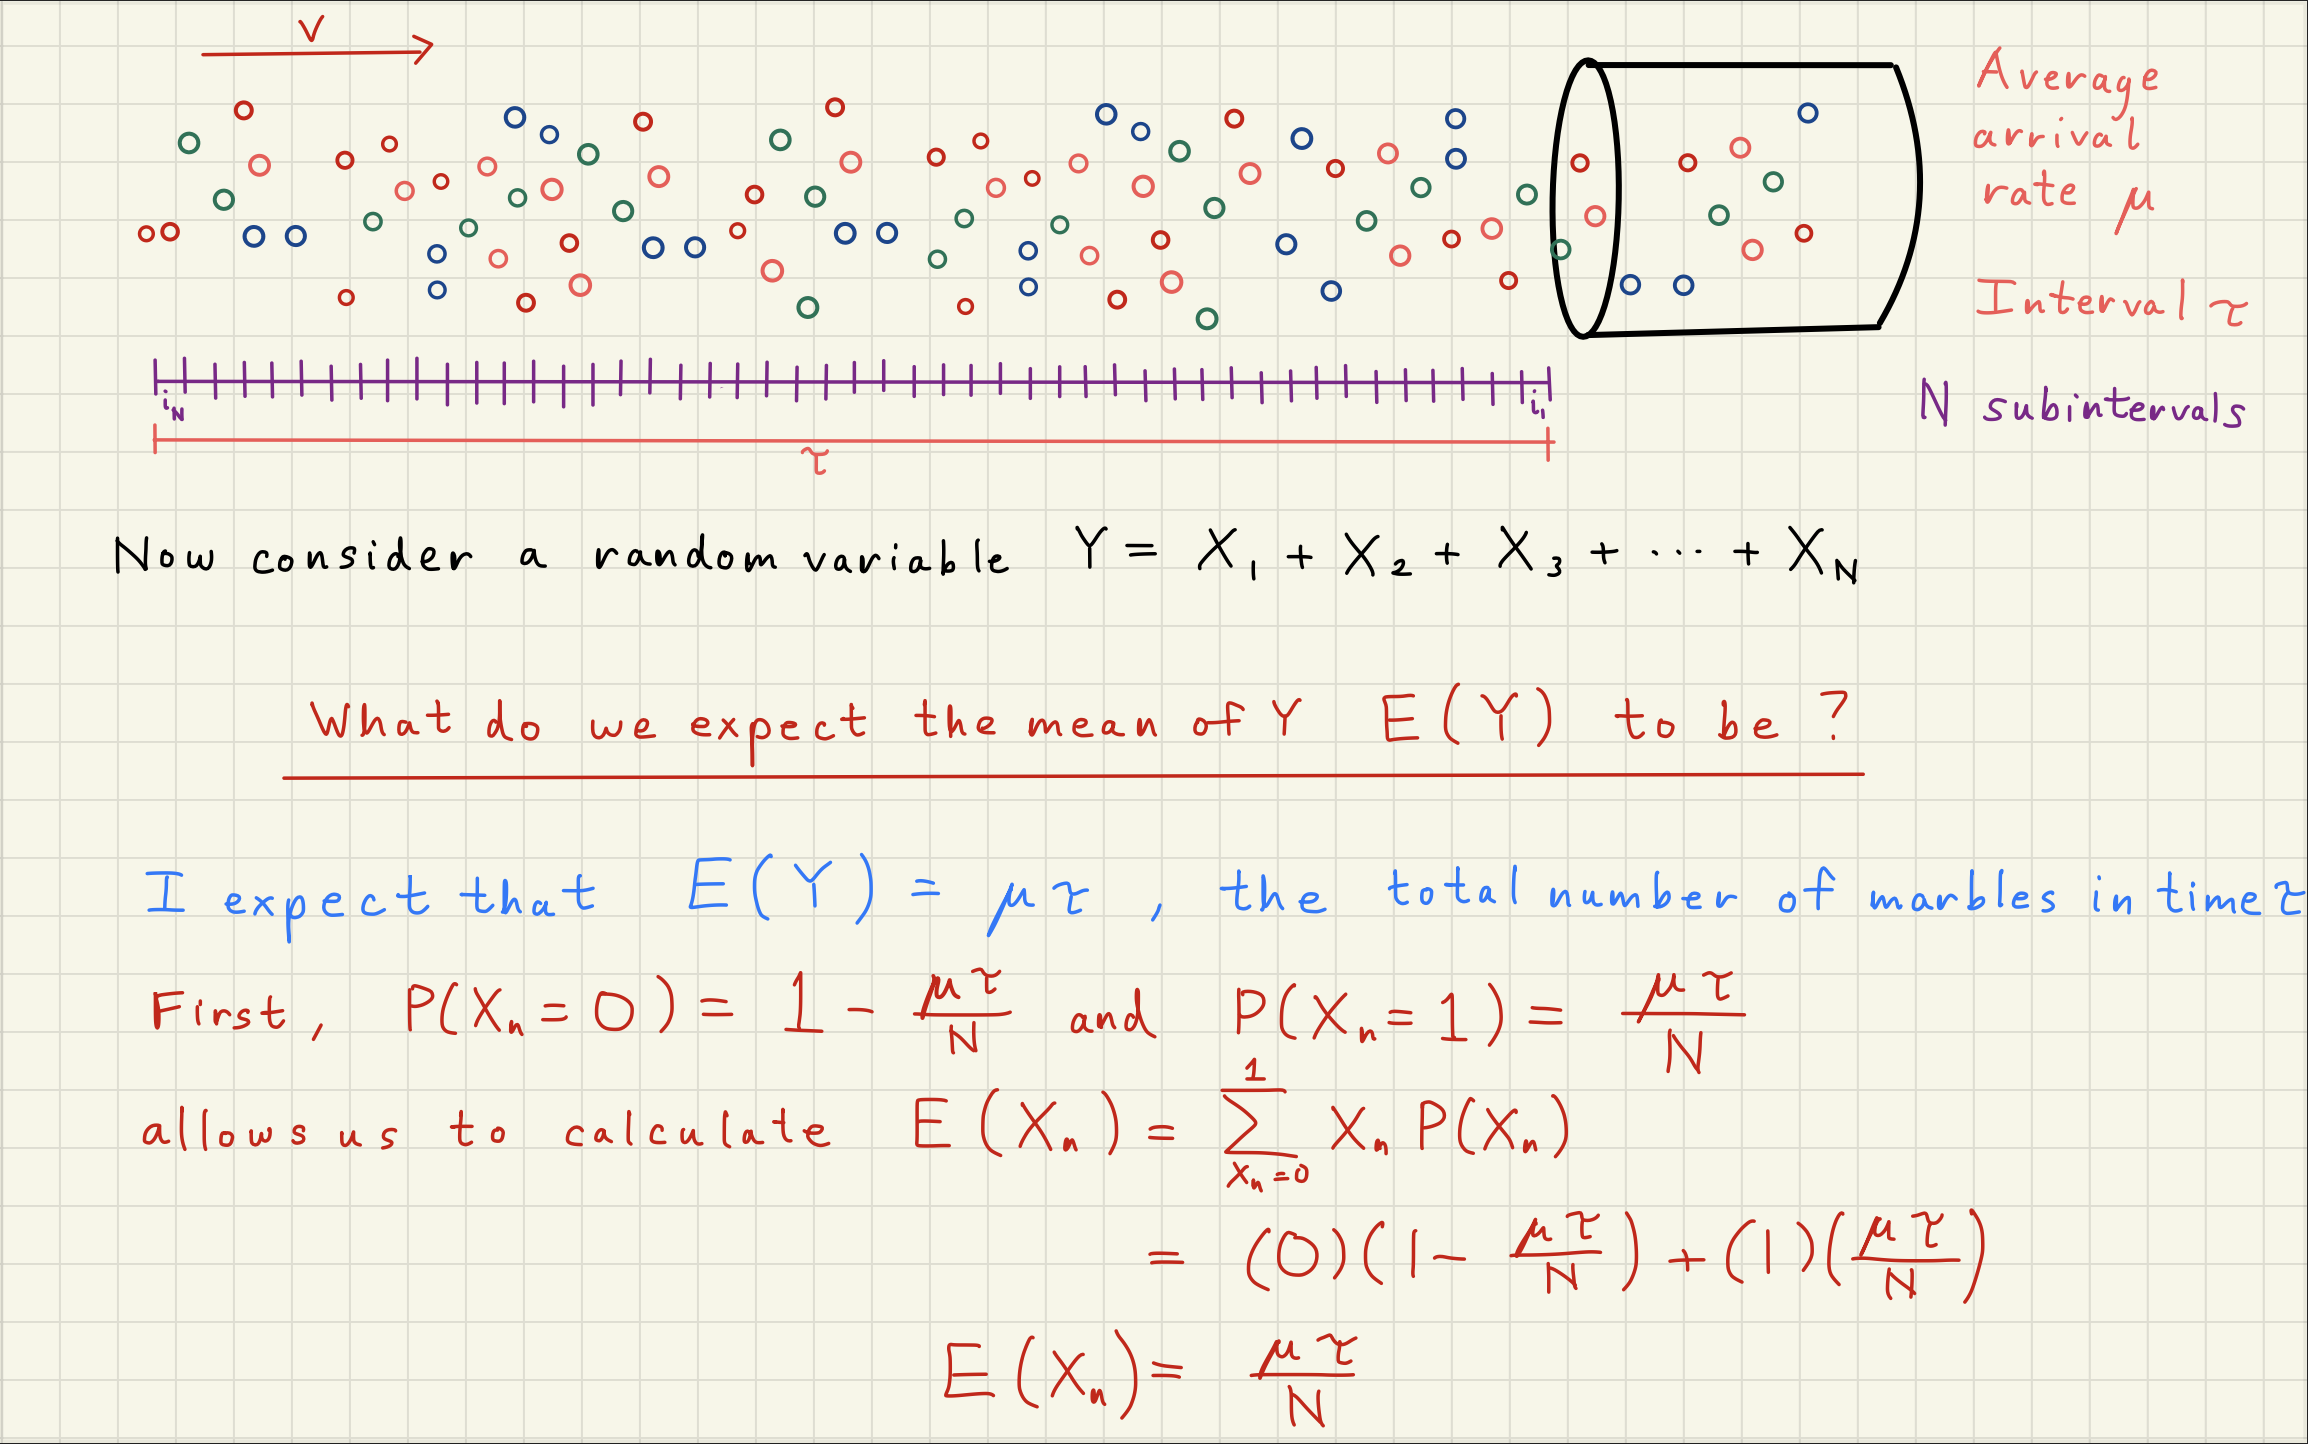 V
Average
arrival
rate μ
Interval τ
i_N i_1
N subintervals
τ
Now consider a random variable Y = X_1 + X_2 + X_3 + ... + X_N
What do we expect the mean of Y E(Y) to be?
I expect that E(Y) = μτ, the total number of marbles in time τ
First, P(X_n = 0) = 1 - μτ/N and P(X_n = 1) = μτ/N
allows us to calculate E(X_n) = ∑_{X_n=0}^{1} X_n P(X_n)
= (0)(1 - μτ/N) + (1)(μτ/N)
E(X_n) = μτ/N